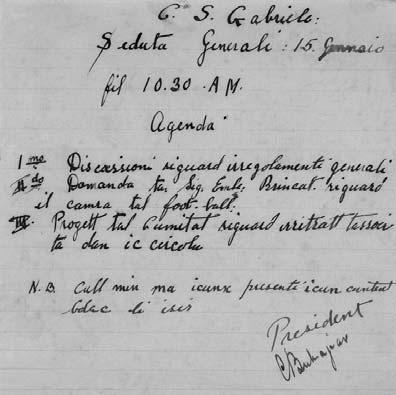 C. S. Gabriele:
Seduta Generali: 15. Gennaio
fil 10.30 A.M.
Agenda
Imo Discussioni riguard irregolamenti generali
IIdo Domanda ta Sig. Emle; Brincat riguard
il camra tal foot-ball;
III. Progett tal Cumitat riguard irritratt tassoci
ta dan ic circolu
N.B. Cull min ma icunx presenti icun cuntent
bdac li isir
President